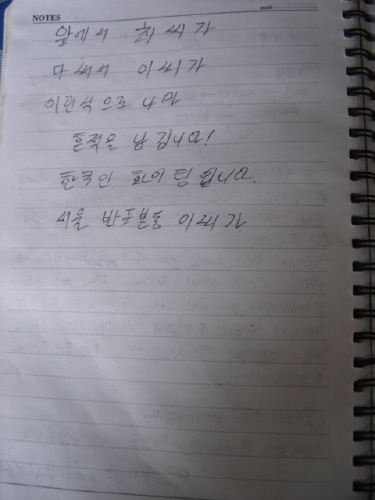 NOTES
DATE
앞에서 최씨가
다 써서 이씨가
이런식으로 나마
흔적을 남깁니다!
한국인 화이팅 합니다.
서울 반포본동 이씨가